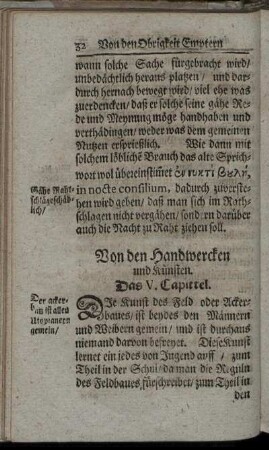 32 Von den Obrigkeit Emptern
wann solche Sache fürgebracht wird/
unbedächtlich heraus platzen/ und dar-
durch hernach bewegt wird/ viel ehe was
zuerdencken/ daß er solche seine gähe Re-
de und Meynung möge handhaben und
verthädingen/ weder was dem gemeinen
Nutzen ersprießlich. Wie dann mit
solchem löblichẽ Brauch das alte Sprich-
wort wol übereinstim̃et ἐν νυκτὶ βυλή,
Gähe Raht-
schläge schäd-
lich/
in nocte consilium, dadurch zuverste-
hen wird geben/ daß man sich im Rath-
schlagen nicht vergähen/ sondern darüber
auch die Nacht zu Raht ziehen soll.
Von den Handwercken
und Künsten.
Das V. Capittel.
Der acker-
bau ist allen
Utopianern
gemein/
DIe Kunst des Feld oder Acker-
baues/ ist beydes den Männern
und Weibern gemein/ und ist durchaus
niemand darvon befreyet. Diese Kunst
lernet ein jedes von Jugend auff/ zum
Theil in der Schul/ da man die Reguln
des Feldbaues fürschreibet/ zum Theil in
den